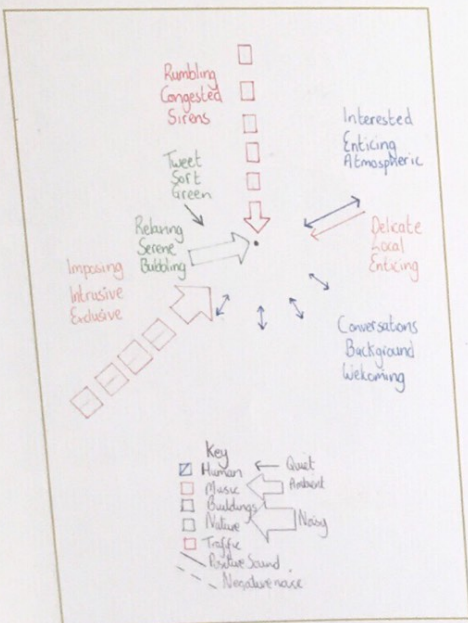 Rumbling
Congested
Sirens
Interested
Enticing
Atmospheric
Tweet
Sort
Green
Relaxing
Serene
Bubbling
Delicate
Local
Enticing
Imposing
Intrusive
Exclusive
Conversations
Background
Welcoming
Key
Human
Quiet
Music
Ambient
Buildings
Nature
Noisy
Traffic
Positive Sound
Negative noise